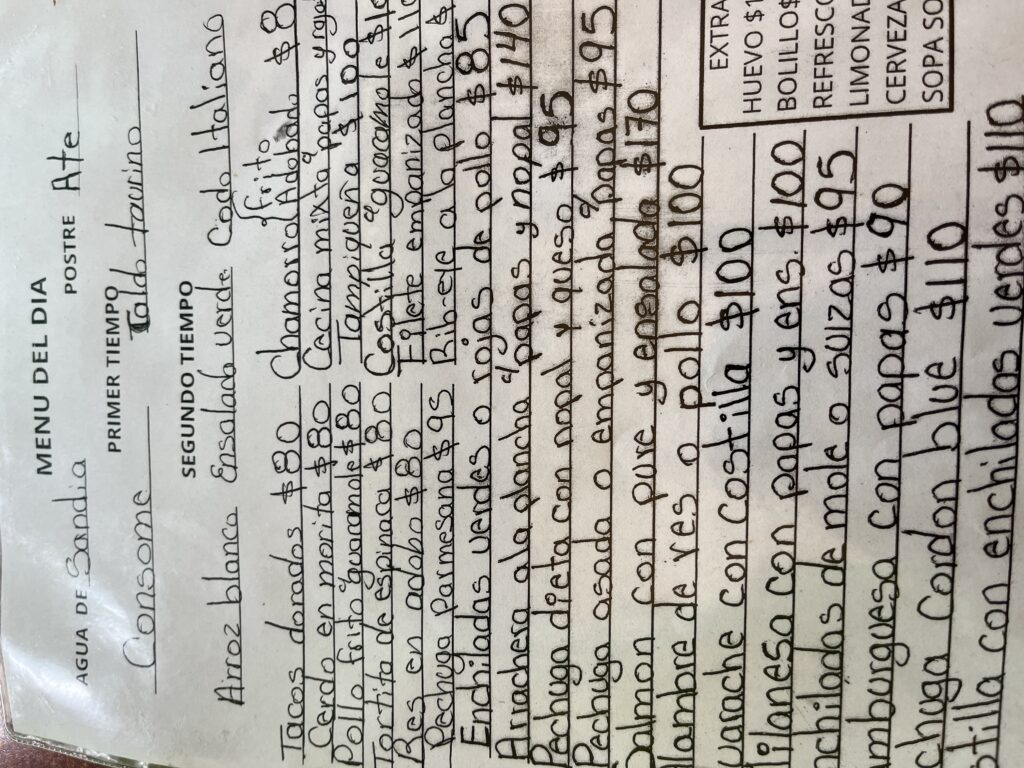 MENU DEL DIA
AGUA DE Sandia POSTRE Ate
PRIMER TIEMPO
Consome Caldo taurino
SEGUNDO TIEMPO
Arroz blanco Ensalada verde Codo Italiano
Tacos dorados $80 Chamorro Adobado frito $8
Cerdo en morita $80 Cecina mixta c/ papas y
Pollo frito c/ guacamole $80 Tampiqueña $100
Tortita de espinaca $80 Costilla c/ guacamole $10
Res en adobo $80 Filete empanizado $1
Pechuga Parmesana $95 Rib-eye a la plancha $
Enchiladas verdes o rojas de pollo $85
Arrachera ala plancha c/ papas y nopal $140
Pechuga dieta con nopal y queso $95
Pechuga asada o empanizada c/ papas $95
Salmon con pure y ensalada $170
lambre de res o pollo $100
uarache con costilla $100
ilanesa con papas y ens. $100
nchiladas de mole o suizas $95
mburguesa con papas $90
chuga Cordon blue $110
stilla con enchiladas verdes $110
EXTRA
HUEVO $1
BOLILLO$
REFRESCO
LIMONAD
CERVEZA
SOPA SO